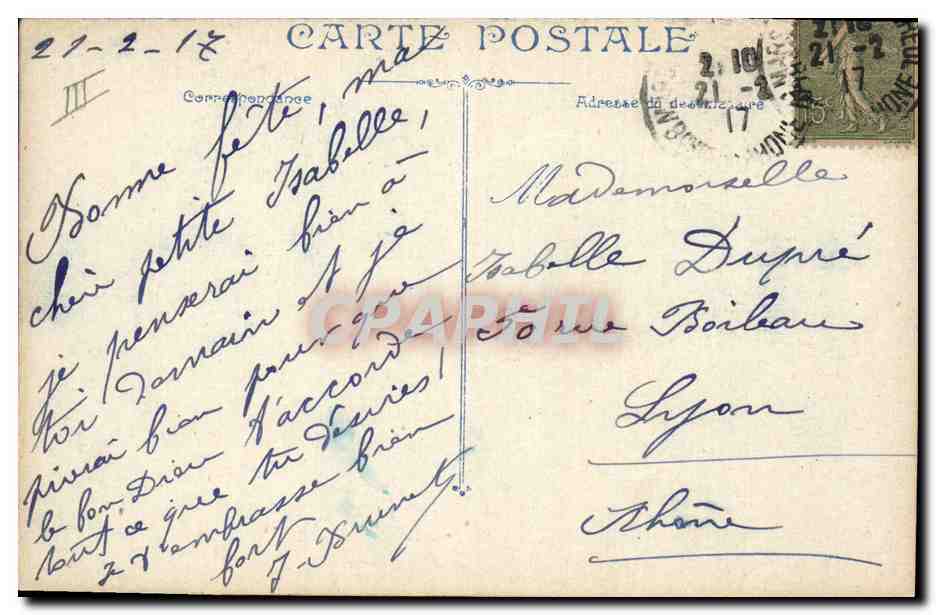 21-2-17
III
CARTE POSTALE
Correspondance
Adresse du destinataire
Bonne fête, ma
chère petite Isabelle,
je penserai bien à
toi demain et je
prierai bien pour que
le bon Dieu t'accorde
tout ce que tu désires!
Je t'embrasse bien
fort
J. Brunet
Mademoiselle
Isabelle Dupré
50 rue Boileau
Lyon
Rhône
2 10
21 -2
17
21 -2
17
15c
CPAPHIL